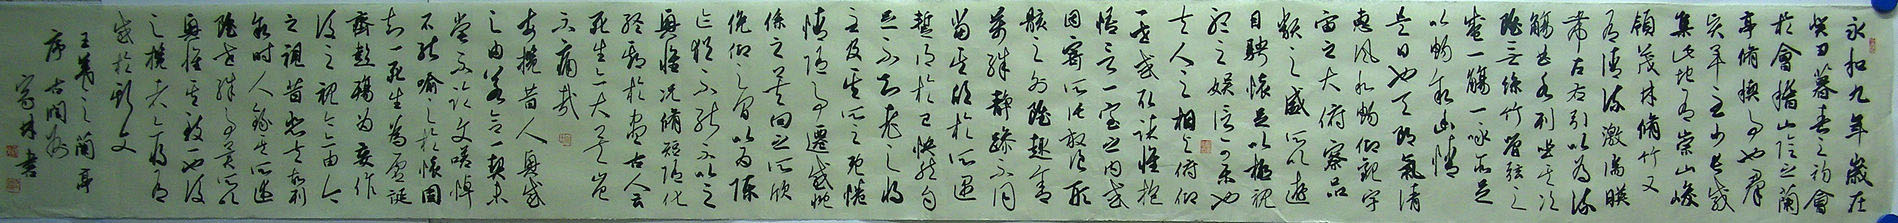 永和九年歲在
癸丑暮春之初會
於會稽山陰之蘭
亭修禊事也群
賢畢至少長咸
集此地有崇山峻
領茂林修竹又
有清流激湍暎
帶左右引以為流
觴曲水列坐其次
雖無絲竹管弦之
盛一觴一詠亦足
以暢敘幽情
是日也天朗氣清
惠風和暢仰觀宇
宙之大俯察品
類之盛所以遊
目騁懷足以極視
聽之娛信可樂也
夫人之相與俯仰
一世或取諸懷抱
悟言一室之內或
因寄所託放浪形
骸之外雖趣舍
萬殊靜躁不同
當其欣於所遇
暫得於己怏然自
足不知老之將
至及其所之既惓
情隨事遷感慨
係之矣向之所欣
俛仰之間以為陳
迹猶不能不以之
興懷況修短隨化
終期於盡古人云
死生亦大矣豈
不痛哉
每攬昔人興感
之由若合一契未
嘗不臨文嗟悼
不能喻之於懷固
知一死生為虛誕
齊彭殤為妄作
後之視今亦由今
之視昔悲夫故列
敘時人錄其所述
雖世殊事異所以
興懷其致一也後
之攬者亦將有
感於斯文
王羲之蘭亭
序 古閩
林書